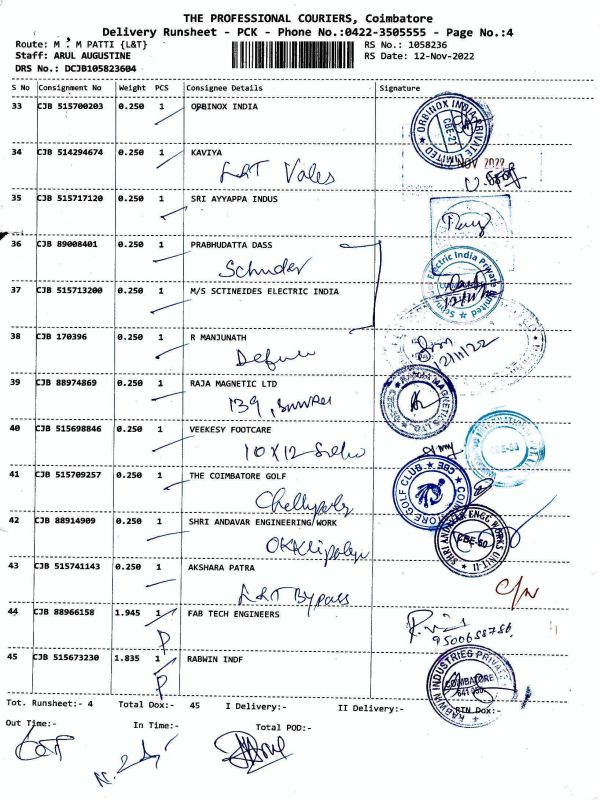 THE PROFESSIONAL COURIERS, Coimbatore
Delivery Runsheet - PCK - Phone No.:0422-3505555 - Page No.:4
Route: M . M PATTI {L&T}
RS No.: 1058236
Staff: ARUL AUGUSTINE
RS Date: 12-Nov-2022
DRS No.: DCJB105823604
S No Consignment No Weight PCS Consignee Details Signature
33 CJB 515700203 0.250 1 ORBINOX INDIA
ORBINOX INDIA PRIVATE LIMITED CBE-21
34 CJB 514294674 0.250 1 KAVIYA
NOV 2022
L&T Vales
35 CJB 515717120 0.250 1 SRI AYYAPPA INDUS
36 CJB 89008401 0.250 1 PRABHUDATTA DASS
Electric India Private Limited
37 CJB 515713200 0.250 1 M/S SCTINEIDES ELECTRIC INDIA
38 CJB 170396 0.250 1 R MANJUNATH
12/11/22
39 CJB 88974869 0.250 1 RAJA MAGNETIC LTD
139,
40 CJB 515698846 0.250 1 VEEKESY FOOTCARE
CBE-50
10x12
41 CJB 515709257 0.250 1 THE COIMBATORE GOLF
COIMBATORE GOLF CLUB CBE
42 CJB 88914909 0.250 1 SHRI ANDAVAR ENGINEERING WORK
SHRI ANDAVAR ENGG WORKS UNIT-II CBE-50
43 CJB 515741143 0.250 1 AKSHARA PATRA
L&T Bypass
44 CJB 88966158 1.945 1 FAB TECH ENGINEERS
P
45 CJB 515673230 1.835 1 RABWIN INDF
P
RABWIN INDUSTRIES PRIVATE COIMBATORE
Tot. Runsheet:- 4 Total Dox:- 45 I Delivery:- II Delivery:- RTN Dox:-
Out Time:- In Time:- Total POD:-